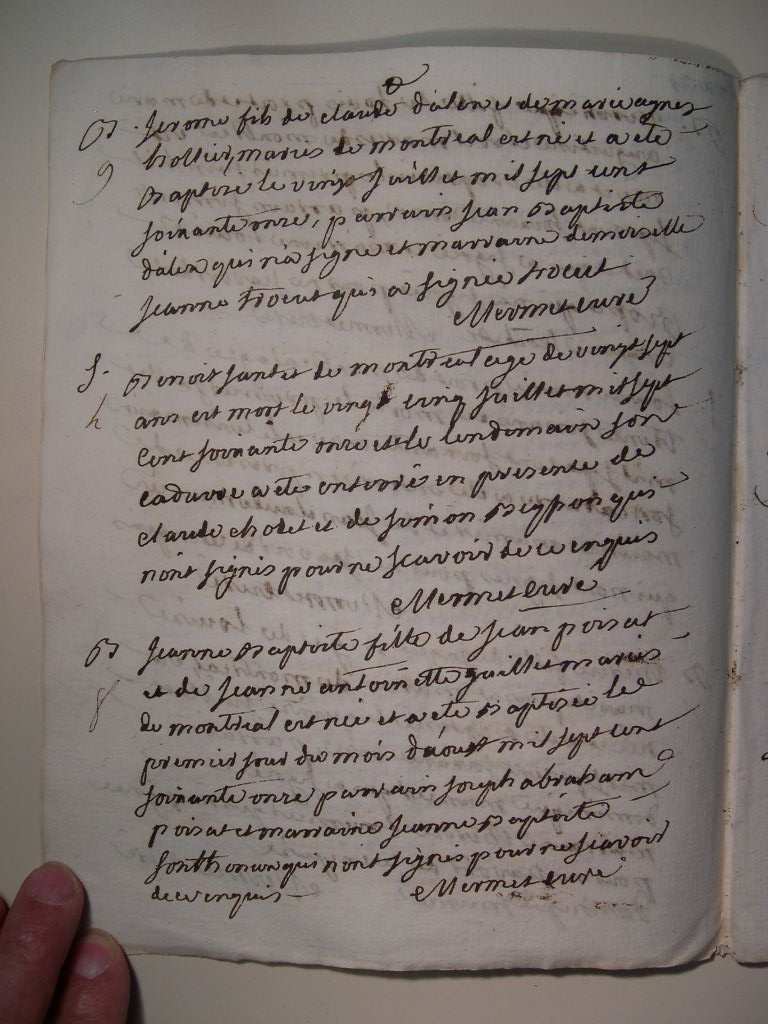 B. Jerome fils de claude dalen et de marie agnes
9 hollier, mariés de montreal est né et a eté
Baptisé le vingt juillet mil sept cent
soixante onze, parrain jean Baptiste
dalen qui n'a signé et marraine demoiselle
jeanne trocut qui a signée trocut
Mermet curé
S. Benoit jantet de montreal agé de vingt sept
h ans est mort le vingt cinq juillet mil sept
cent soixante onze et le lendemain son
cadavre a eté enterré en presente de
claude chodet et de simon qui
n'ont signés pour ne scavoir de ce enquis
Mermet curé
B Jeanne Baptiste fille de jean poisat
8 et de jeanne antoinette guillet mariés
de montreal est née et a eté Baptisée le
premier jour du mois d'aoust mil sept cent
soixante onze parrain joseph abraham
poisat et marraine jeanne Baptiste
sonthonax qui n'ont signés pour ne scavoir
de ce enquis Mermet curé